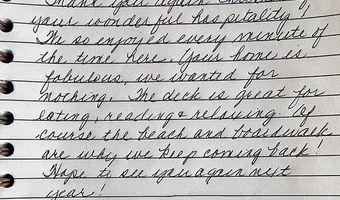 Thank you again
your wonderful hospitality!
We so enjoyed every minute of
the time here. Your home is
fabulous, we wanted for
nothing. The deck is great for
eating, reading & relaxing. Of
course the beach and boardwalk
are why we keep coming back!
Hope to see you again next
year!